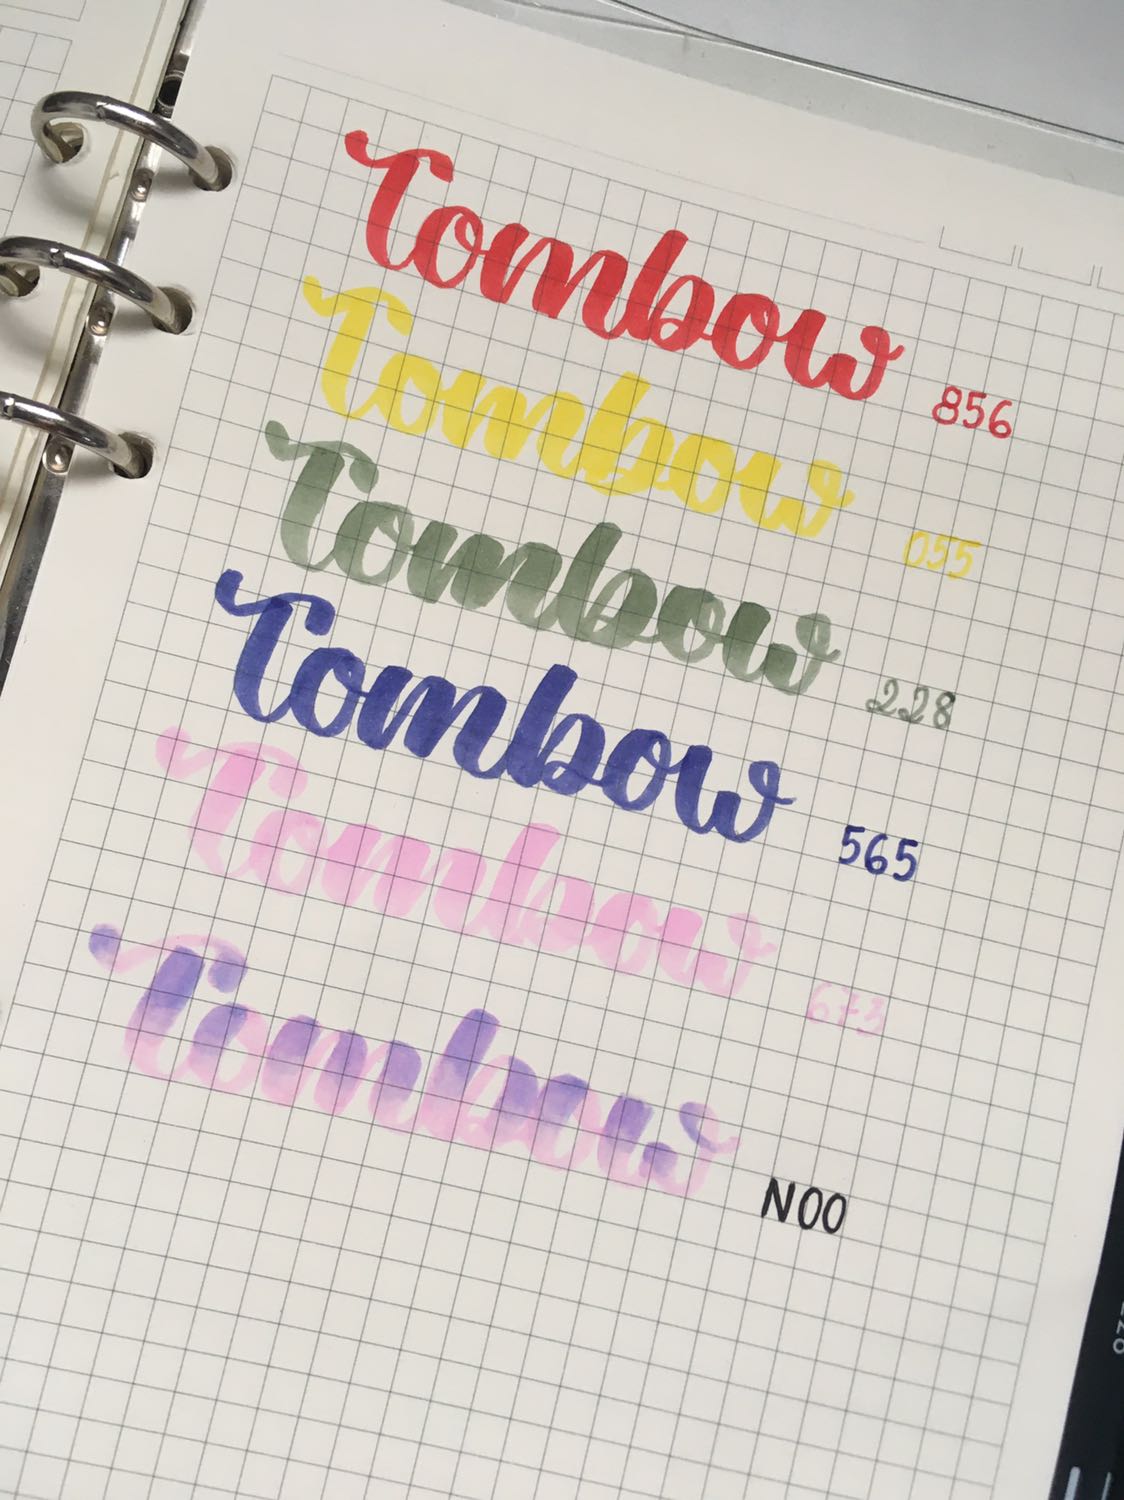 Tombow 856
Tombow 055
Tombow 228
Tombow 565
Tombow 673
Tombow N00